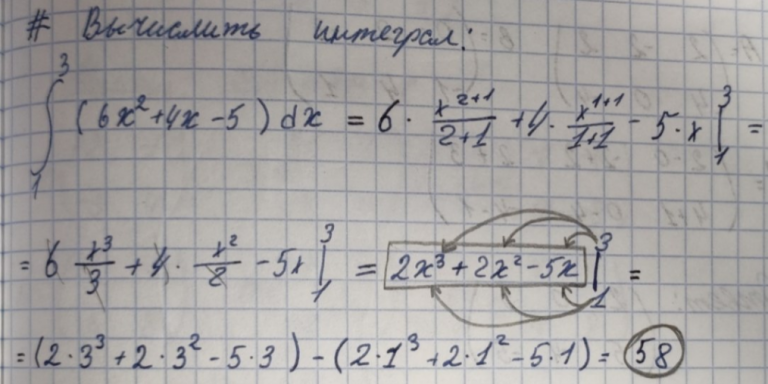 # Вычислить интеграл:
∫₁³ (6x²+4x-5) dx = 6 · x²⁺¹/2+1 + 4 · x¹⁺¹/1+1 - 5·x |₁³ =
= 6 x³/3 + 4 · x²/2 - 5x |₁³ = 2x³+2x²-5x |₁³ =
= (2·3³+2·3²-5·3) - (2·1³+2·1²-5·1) = 58